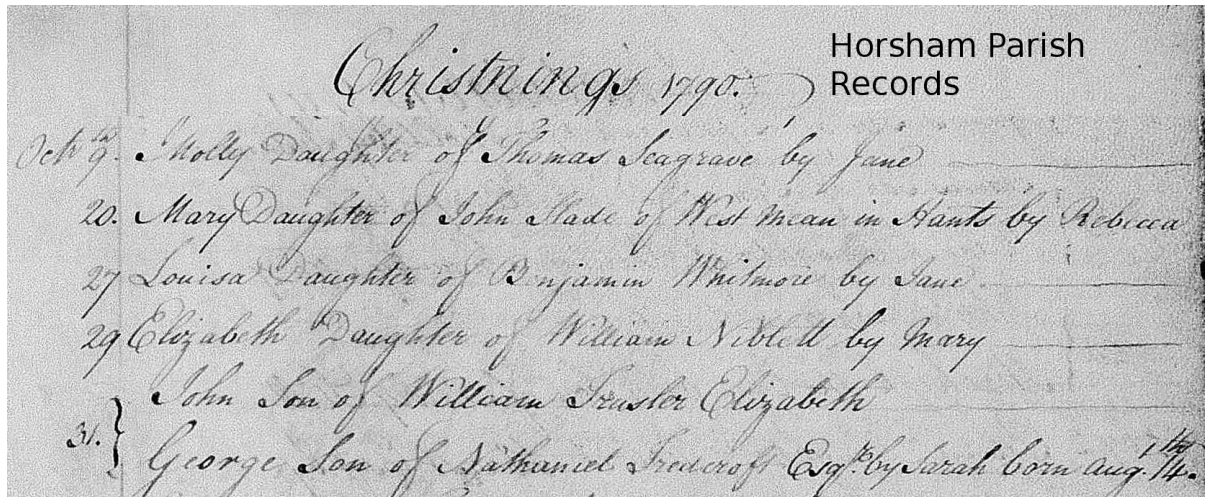 Christnings 1790.
Horsham Parish
Records
Octr 9. Molly Daughter of Thomas Seagrave by Jane
20. Mary Daughter of John Slade of West Mean in Hants by Rebecca
27 Louisa Daughter of Benjamin Whitmore by Jane
29 Elizabeth Daughter of William Niblett by Mary
John Son of William Trusler Elizabeth
31. George Son of Nathaniel Tredcroft Esqr. by Sarah born Augt. 14th.